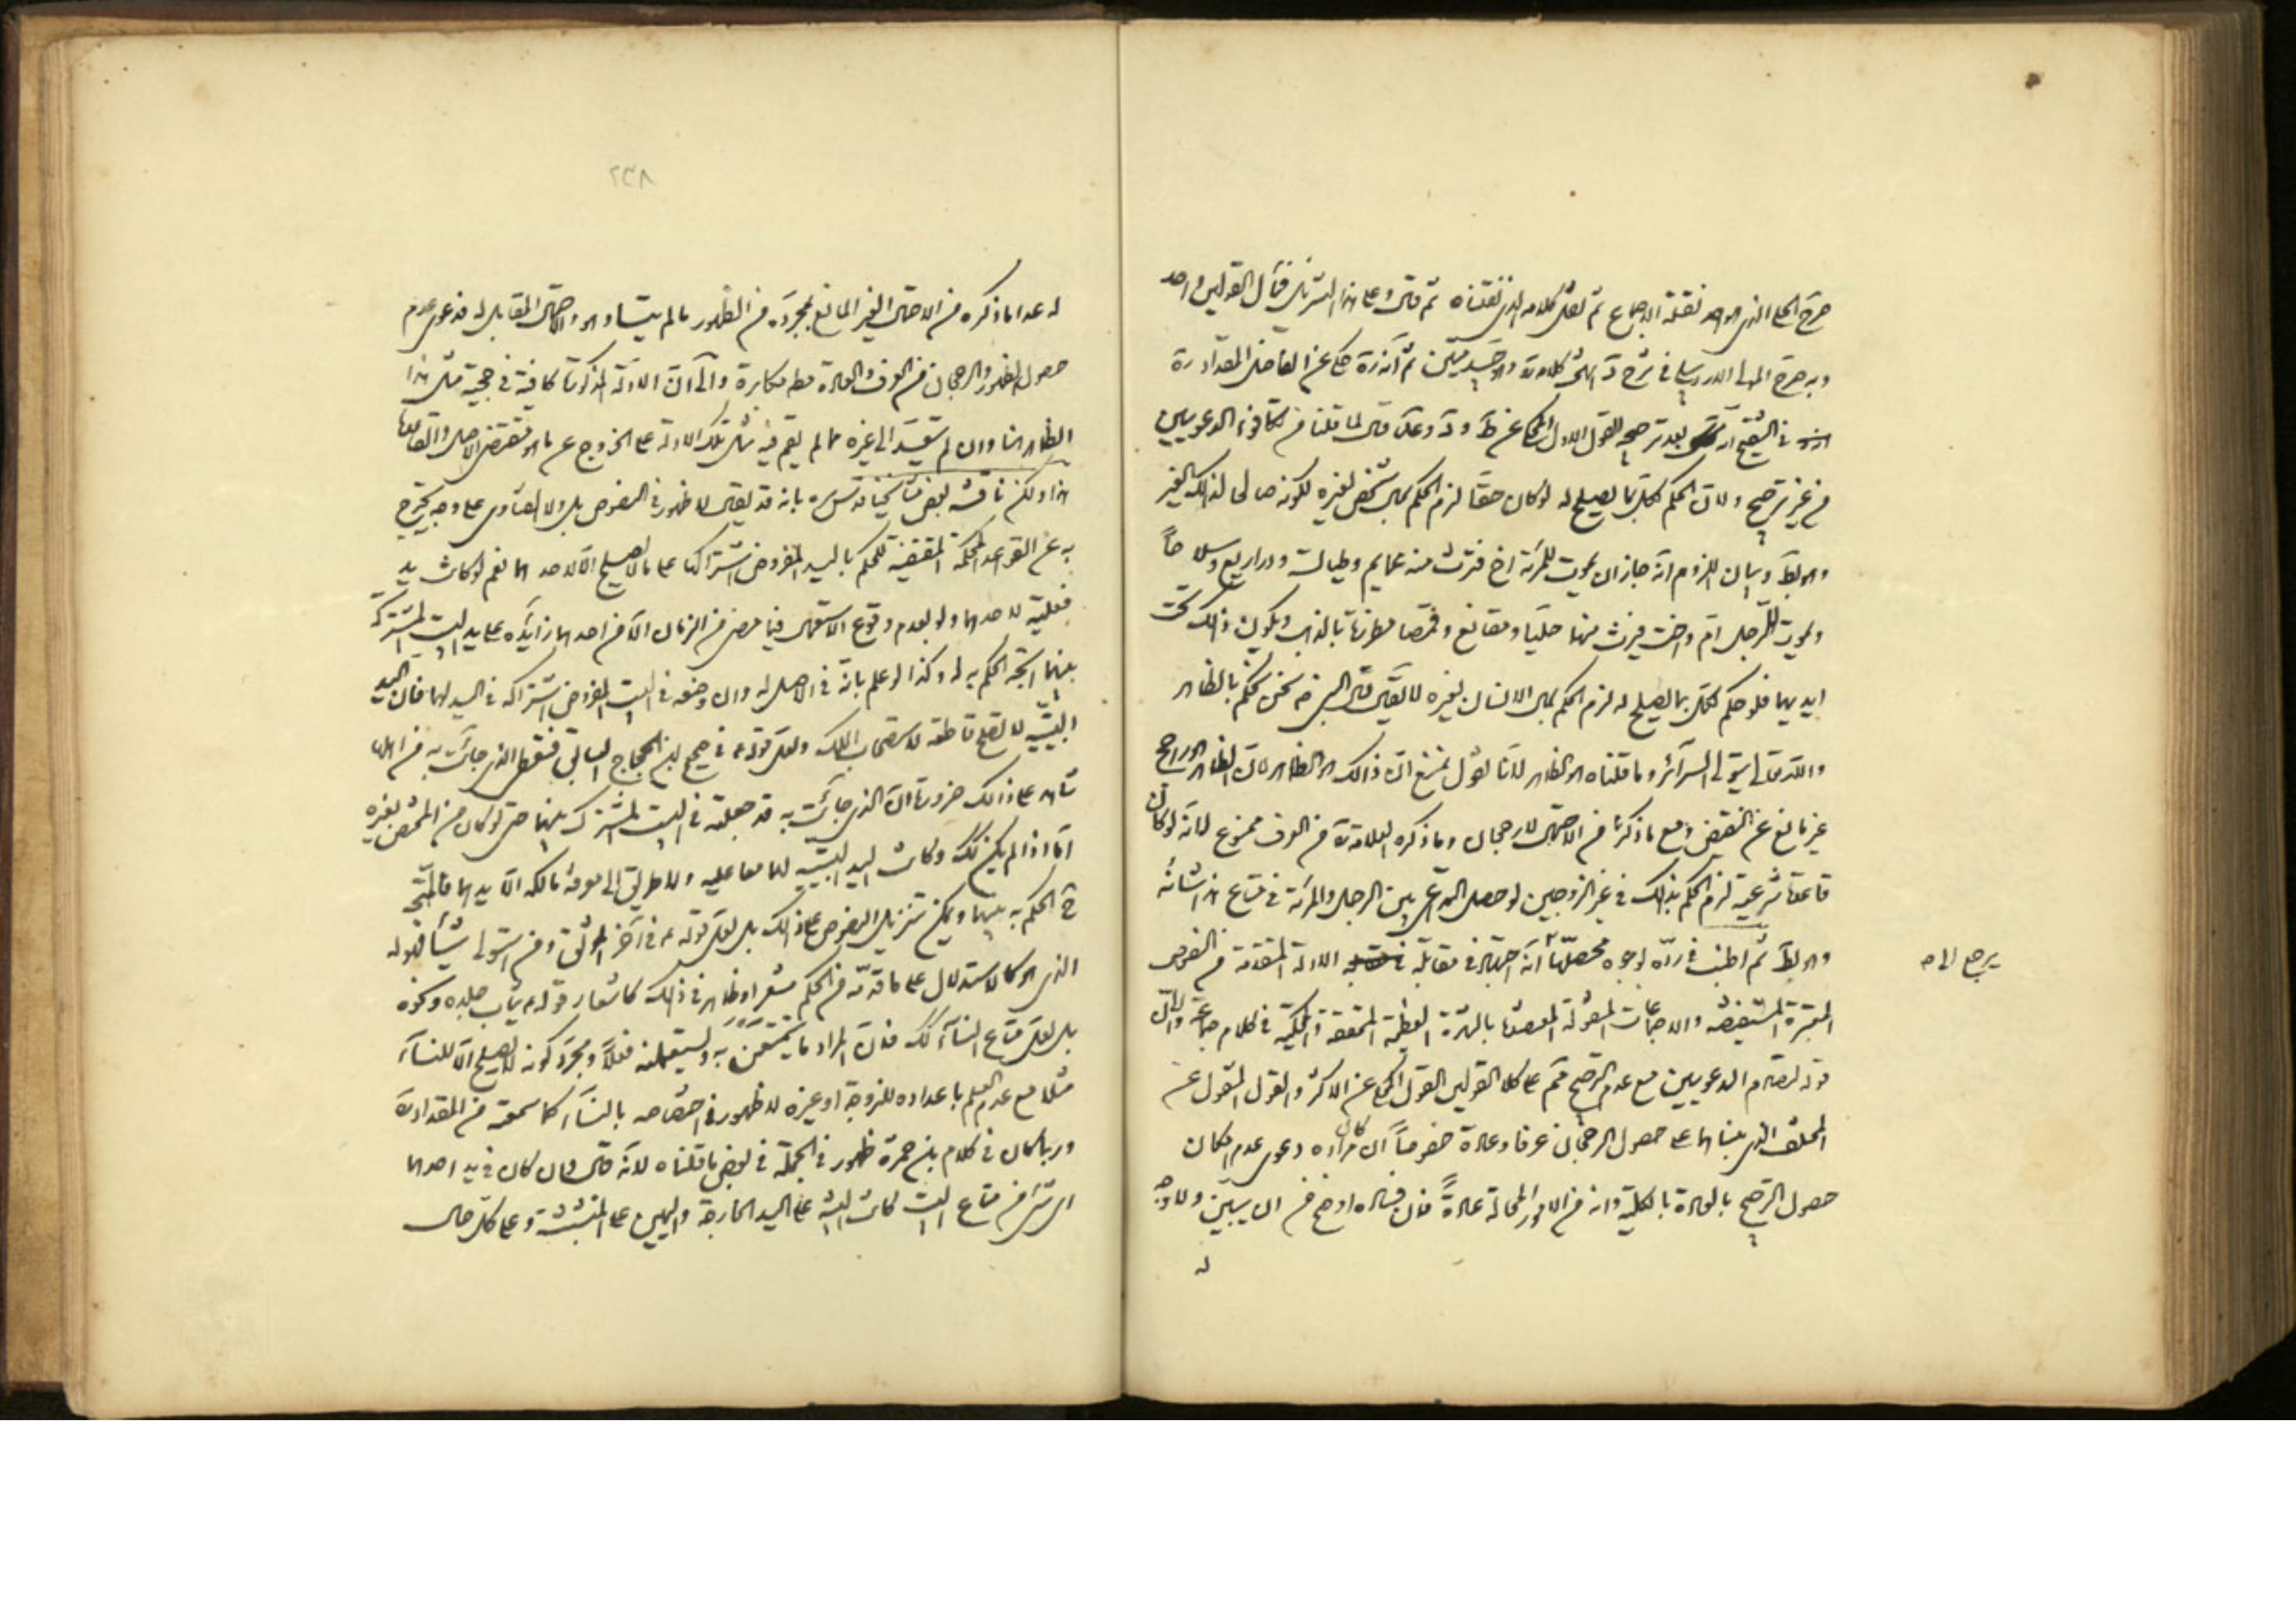 صرح الحلي الذي هو احد نقلة الاجماع ثم نقل كلامه الذي نقلناه ثم قال وعلى هذا التنزيل فمآل القولين واحد
وبه صرح المولى الاردبيلي في شرح د انتهى كلامه وهو جيد متين ثم انه ره حكى عن الفاضل المقداد ره
في التنقيح انه بعد ترجيحه للقول الاول المحكي عن ط و د و عد قال لما قلنا من تكافؤ الدعويين
من غير ترجيح ولان الحكم لكل بما يصلح له لو كان حقا لزم الحكم بمال شخص لغيره لكونه صالحا لذلك الغير
وهو بط وبيان اللزوم انه جاز ان يموت للمرئة اخ فترث منه عمايم وطيالسة ودراريع وسلاحاً
ويموت للرجل ام واخت فيرث منهما حليا ومقانع وقمصا مطرزة بالذهب ويكون ذلك تحت
ايديهما فلو حكم لكل بما يصلح له لزم الحكم بمال الانسان لغيره لا يقال قال النبي ص نحن نحكم بالظاهر
والله تعالى يتولى السرائر وما قلناه هو الظاهر لانا نقول نمنع ان ذلك هو الظاهر لان الظاهر هو الراجح
غير مانع عن النقيض ومع ما ذكرنا من الاحتمال لا رجحان وما ذكره العلامة من العرف ممنوع لانه لو كان
قاعدة شرعية لزم الحكم بذلك في غير الزوجين لو حصل التداعي بين الرجل والمرئة في متاع هذا شانه
وهو بط ثم اطنب في رده بوجوه محصلها انه اجتهاد في مقابلة الادلة المتقدمة من النصوص
المعتبرة المستفيضة والاجماعات المنقولة المعتضدة بالشهرة العظيمة المحققة والمحكية في كلام جماعة وان
قوله بتصادم الدعويين مع عدم الترجيح قيم على كلا القولين القول المحكي عن الاكثر والقول المنقول عن
المختلف الذي بيناهما على حصول الرجحان عرفا وعادة خصوصاً ان كان مراده دعوى عدم امكان
حصول الترجيح بالعادة بالكلية وانه من الامور المحالة عادةً فان فساده اوضح من ان يبين ولا وجه
له
يرجع الى ص
٢٣٨
له عدا ما ذكره من الاحتمال الغير المانع بمجرده من الظهور ما لم يتساو هو والاحتمال المقابل له فدعوى عدم
حصول الظهور والرجحان من العرف والعادة مطلقا مكابرة والى ان الادلة المذكورة كافية في حجية مثل هذا
الظاهر هنا وان لم نتعد الى غيره مما لم يقم فيه مثل تلك الادلة على الخروج عن ما هو مقتضى الاصل والقاعدة
هذا ولكن ناقشه بعض مشايخنا قدس سره بانه قد يقال لا ظهور في النصوص بل ولا الفتاوى على وجه يخرج
به عن القواعد المحكمة المقتضية للحكم باليد المفروض اشتراكها على ما لا يصلح الا لاحدهما نعم لو كانت يد
فعلية لاحدهما ولو بعدم وقوع الاستعمال فيما مضى من الزمان الا من احدهما زائدة على يد البيت المشتركة
بينهما اتجه الحكم به له وكذا لو علم بانه في الاصل له وان وضعه في البيت المفروض اشتراكه في اليد لهما فان اليد
البيتية لا تصلح قاطعة لاستصحاب الملك ولعل قوله ع في صحيح ابن الحجاج السابق فنعطي الذي جائت به من اهلها
شاهد على ذلك ضرورة ان الذي جائت به قد جعلته في البيت المشترك بينهما حتى لو كان من المختص بغيره
اما اذا لم يكن كك وكانت اليد البيتية لهما معا عليه ولا طريق الى معرفة مالكه الا يدهما فالمتجه
ح الحكم به بينهما ويمكن تنزيل النصوص على ذلك بل لعل قوله ع في آخر الموثق ومن استولى على شيء فهو له
الذي هو كالاستدلال على ما قدمه من الحكم مشعر او ظاهر في ذلك كاشعار قوله ع ثياب جلده ونحوه
بل لعل متاع النساء كك فان المراد ما يتمتعن به ويستعملنه فعلاً ومجرد كونه لا يصلح الا للنساء
مثلا مع عدم العلم باعداده للزوجة او غيره لا ظهور في اختصاصه بالنساء كما سمعته من المقداد
وربما كان في كلام ابن حمزة ظهور في الجملة في بعض ما قلناه لانه قال وان كان في يد احدهما
اي شيء من متاع البيت كانت البينة على اليد الخارجة واليمين على المتشبثة وعلى كل حال